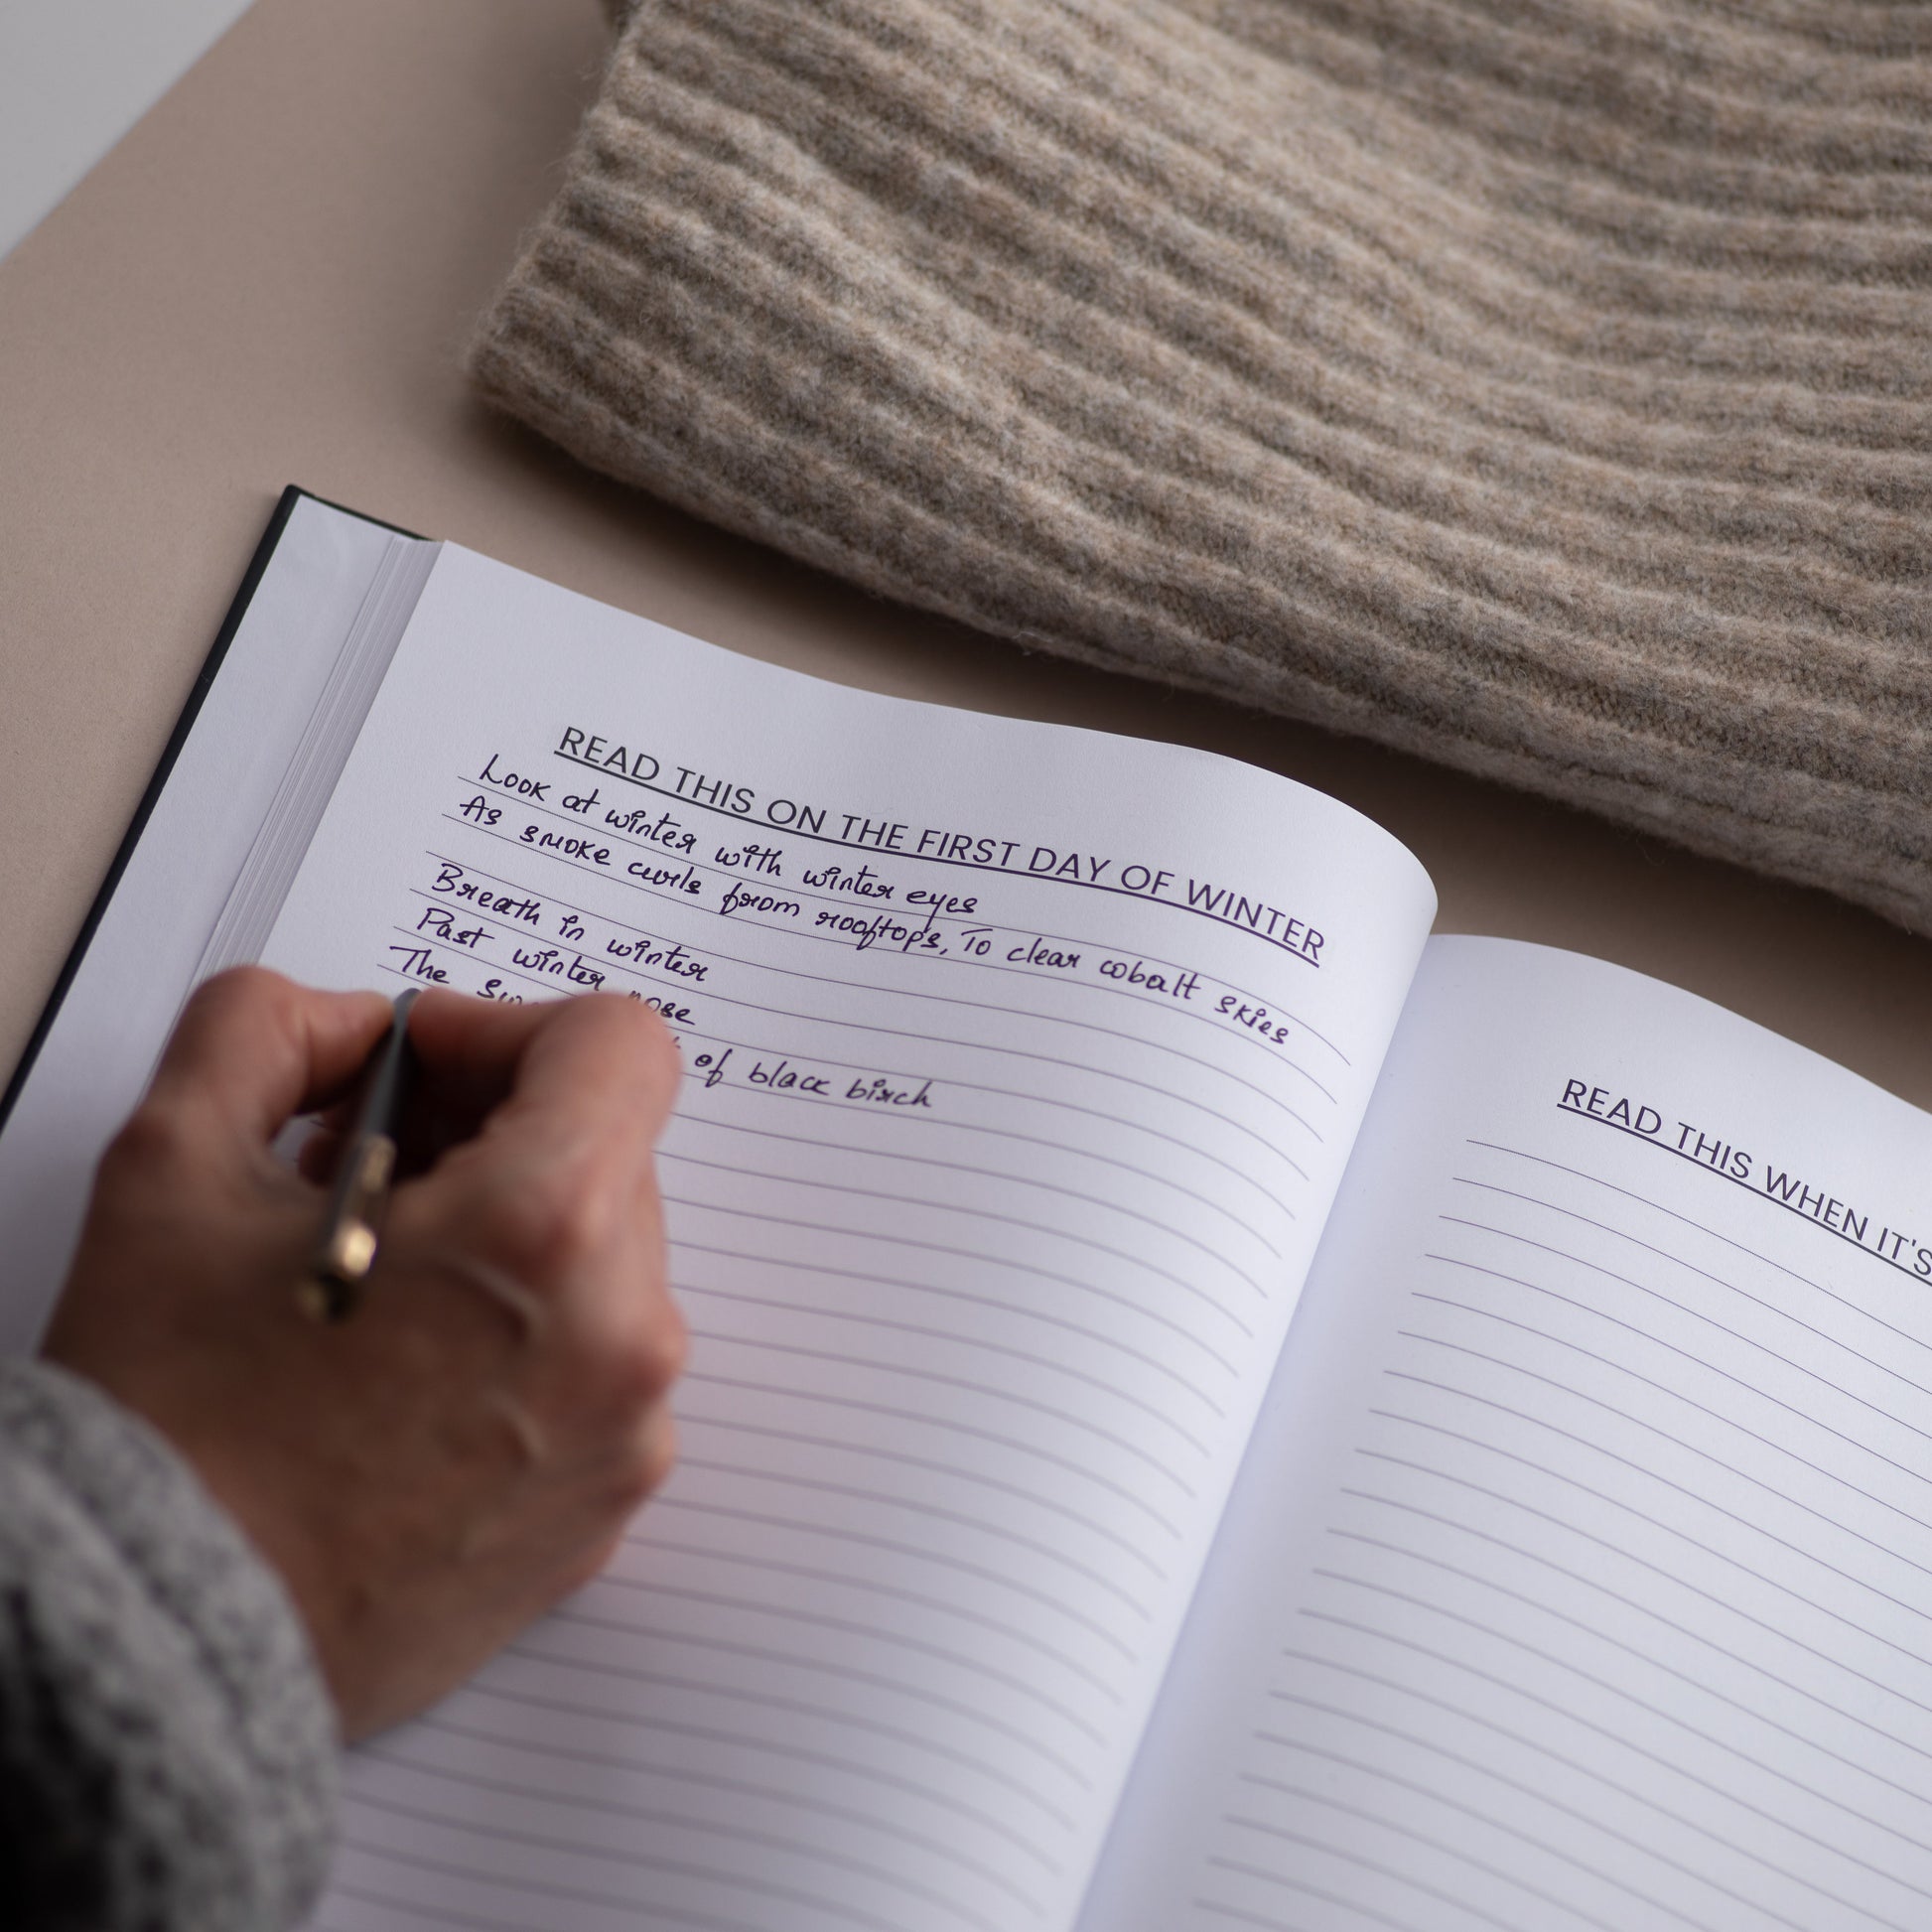 READ THIS ON THE FIRST DAY OF WINTER
Look at winter with winter eyes
As smoke curls from rooftops, To clear cobalt skies
Breath in winter
Past winter nose
The of black birch
READ THIS WHEN IT'S